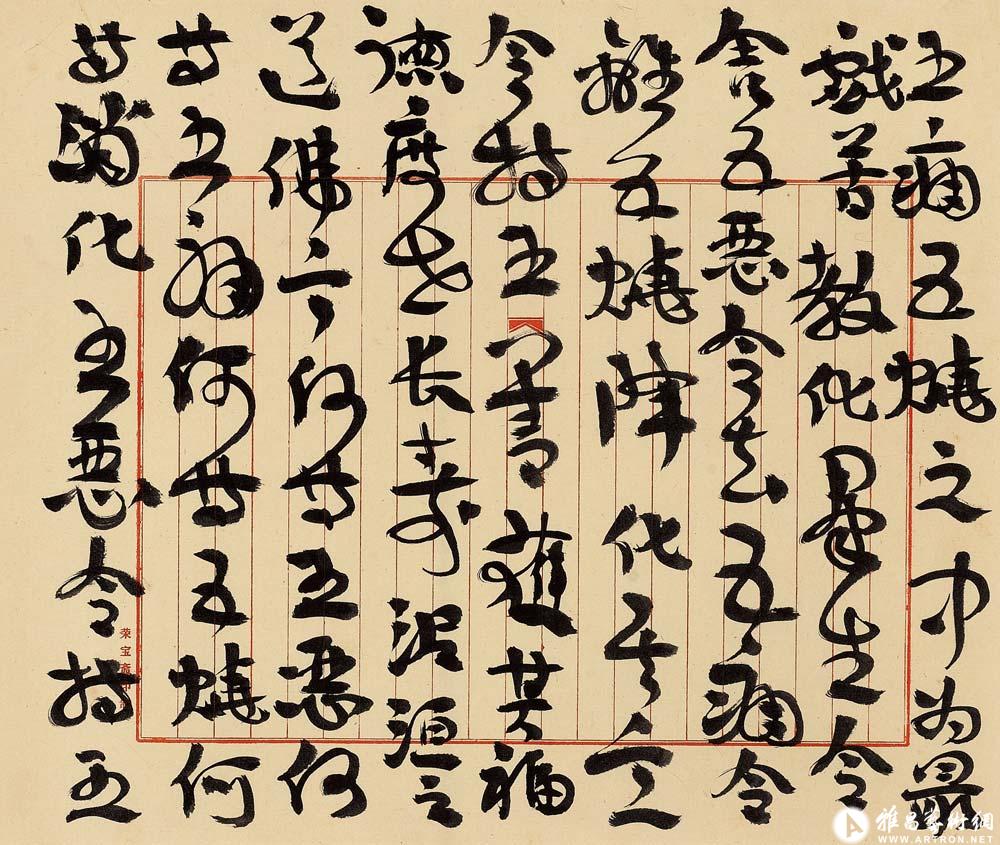 五痛五燒之中为最
劇苦教化羣生令
舍五惡令去五痛令
離五燒降化其意
令持五善獲其福
德度世长寿泥洹之
道佛言何等五惡何
等五痛何等五燒何
等消化五惡令持五
荣宝斋
雅昌藝術網
WWW.ARTRON.NET